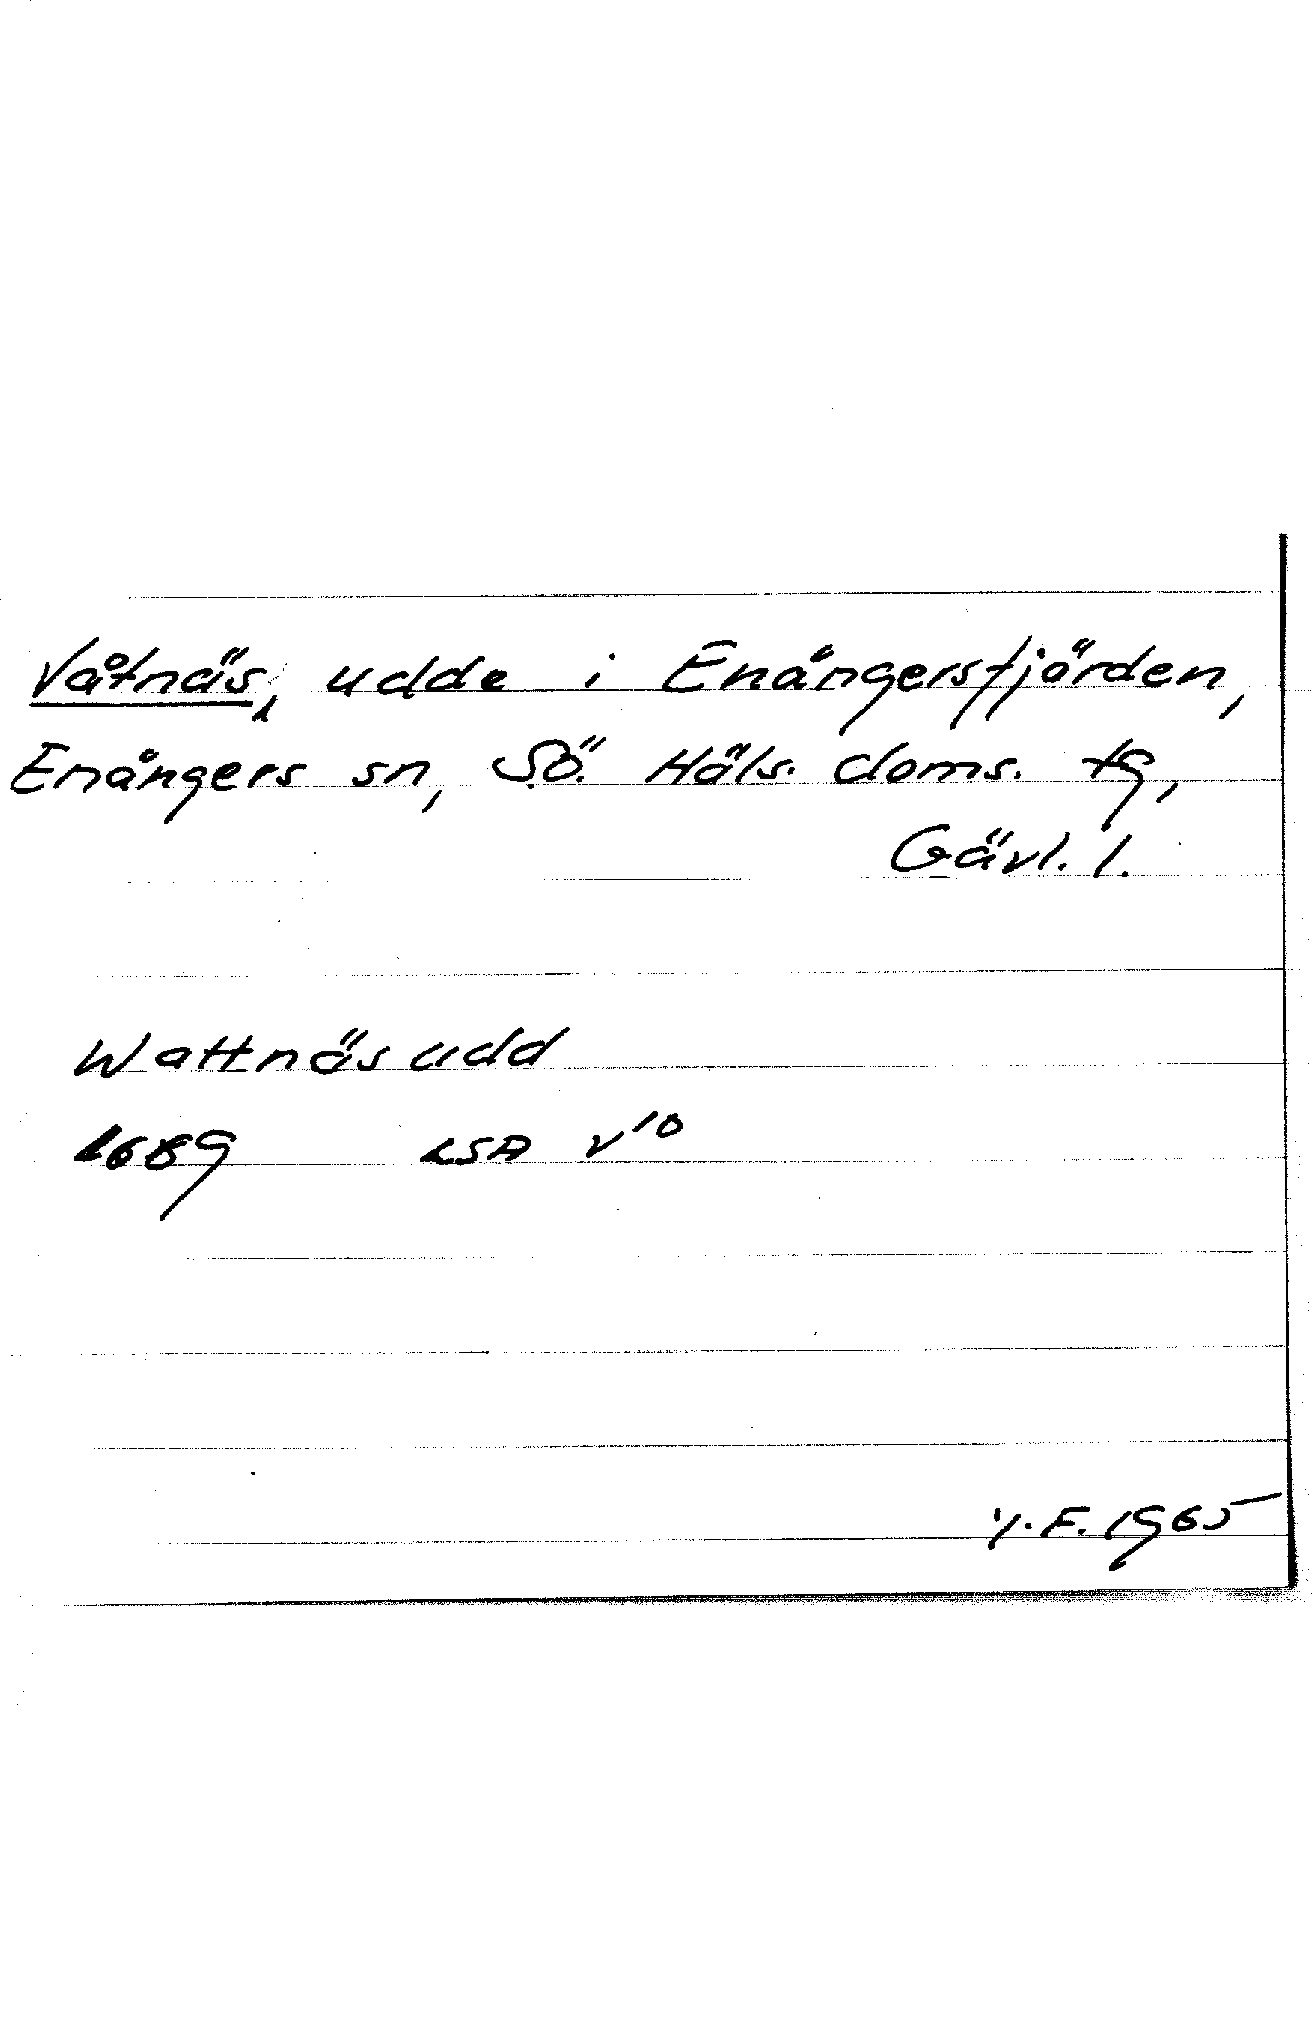 Våtnäs, udde i Enångersfjärden,
Enångers sn, Sö. Häls. doms. tg,
Gävl. l.
Wattnäs udd
1689 LSA V10
F. 1965